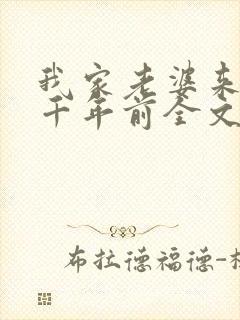 我家老婆来
千年前全文
布拉德福德-